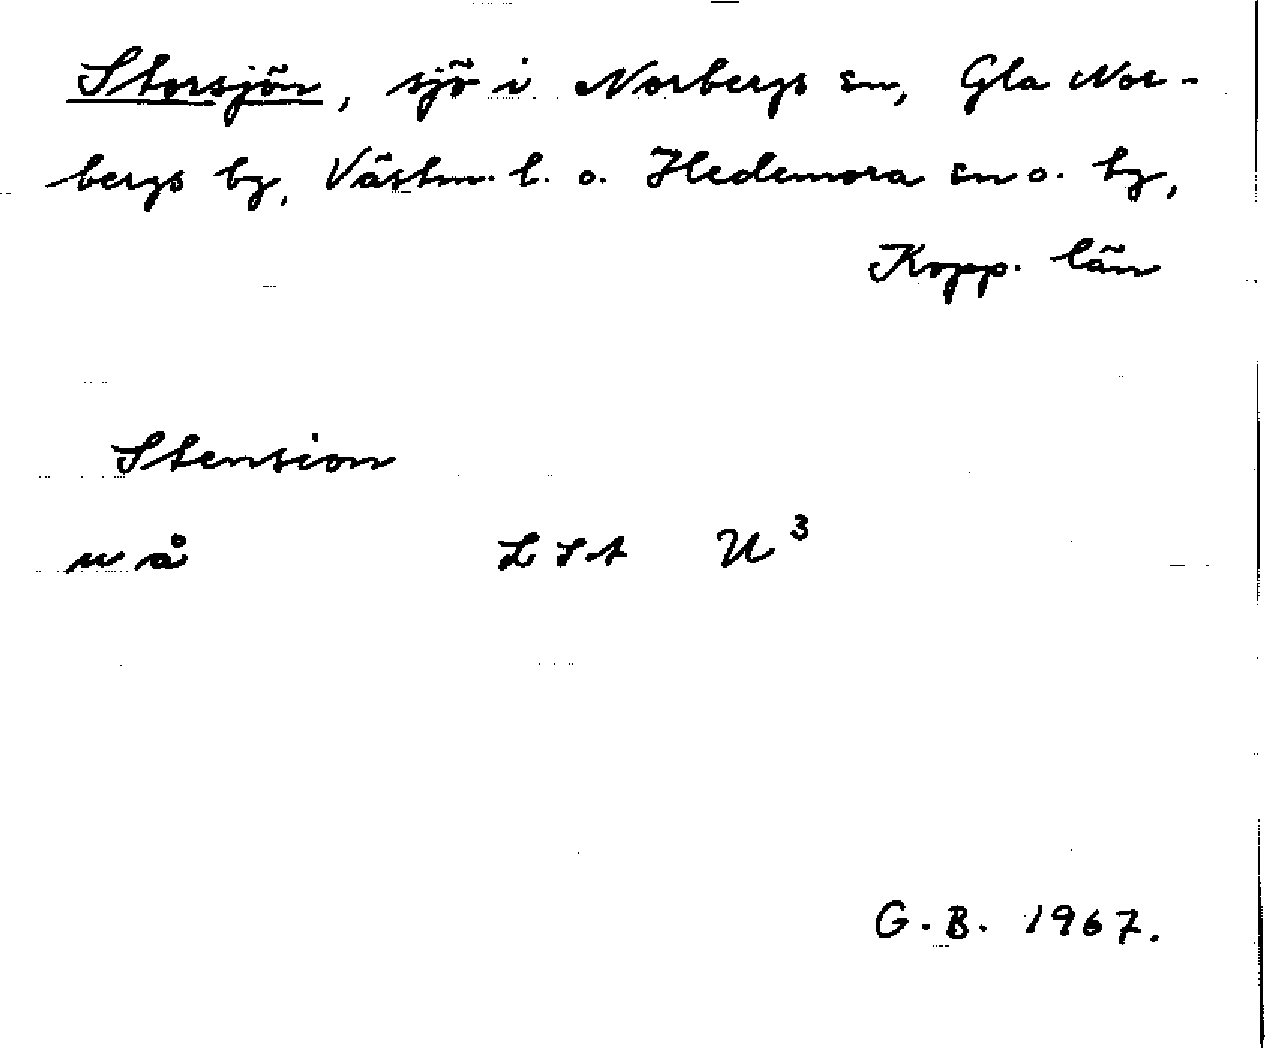 Storsjön, sjö i Norbergs sn, Gla Nor-
bergs bg, Västm. l. o. Hedemora sn o. tg,
Kopp. län
Stension
u å LSA U³
G.B. 1967.